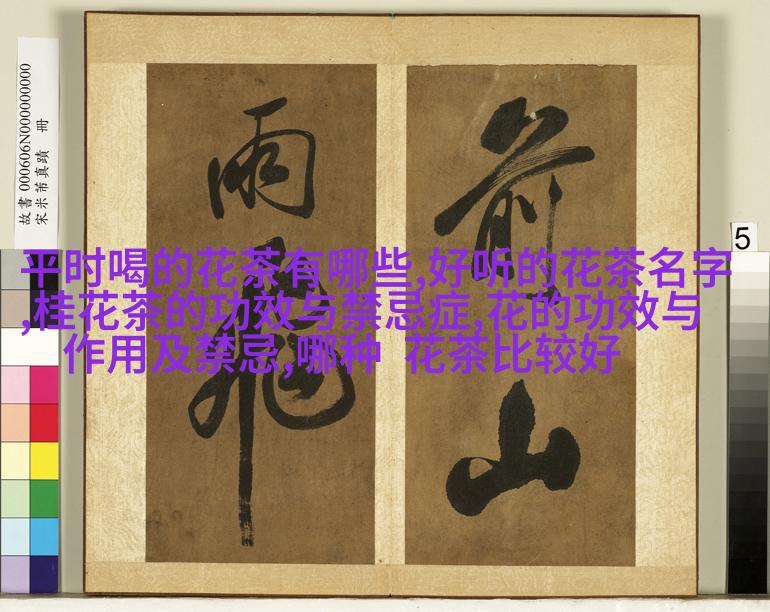 故書
宋米芾真蹟 冊
5
前山
雨
平时喝的花茶有哪些,好听的花茶名字
,桂花茶的功效与禁忌症,花的功效与
作用及禁忌,哪种 花茶比较好